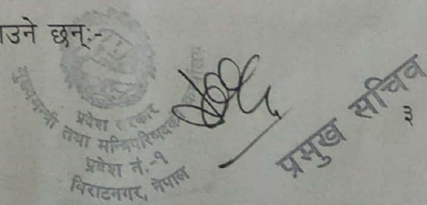 उने छन्:-
मुख्यमन्त्री तथा मन्त्रिपरिषद्को
प्रदेश सरकार
प्रदेश नं.-१
विराटनगर, नेपाल
प्रमुख सचिव
३